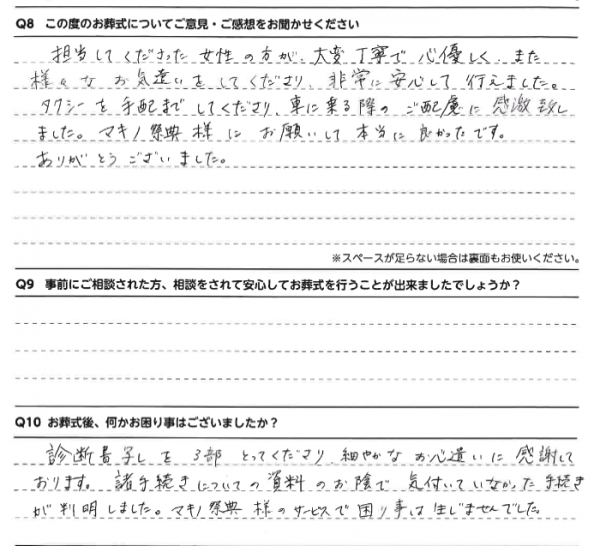 Q8 この度のお葬式についてご意見・ご感想をお聞かせください
担当してくださった女性の方が、大変丁寧で心優しく、また
様々なお気遣いをしてくださり、非常に安心して行えました。
タクシーを手配までしてくださり、車に乗る際のご配慮に感激致し
ました。マキノ祭典様にお願いして本当に良かったです。
ありがとうございました。
※スペースが足らない場合は裏面もお使いください。
Q9 事前にご相談された方、相談をされて安心してお葬式を行うことが出来ましたでしょうか？
Q10 お葬式後、何かお困り事はございましたか？
診断書写しを3部とってくださり、細やかなお心遣いに感謝して
おります。諸手続きについての資料のお陰で気付いていなかった手続き
が判明しました。マキノ祭典様のサービスで困り事は生じませんでした